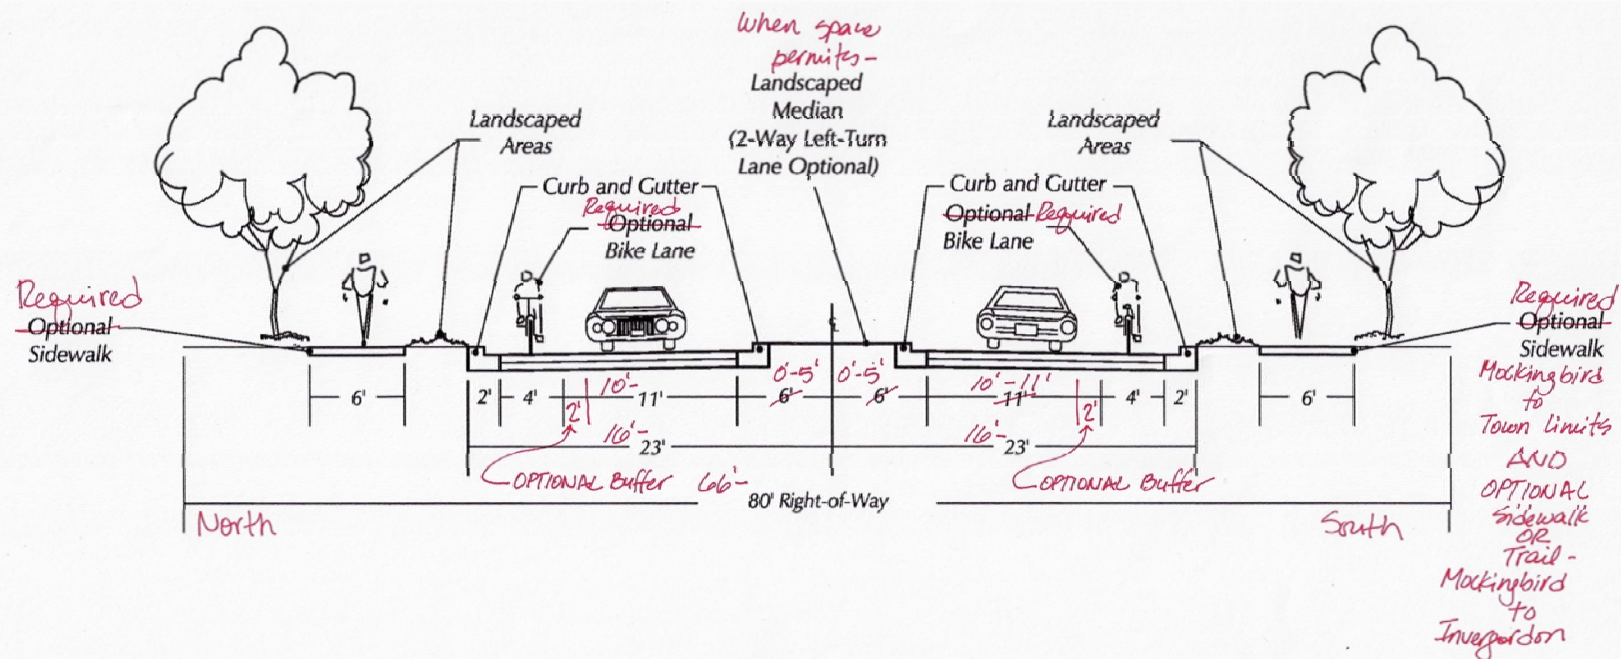 When space
permits-
Landscaped
Median
(2-Way Left-Turn
Lane Optional)
Landscaped
Areas
Landscaped
Areas
Curb and Gutter
Required
Optional
Bike Lane
Curb and Gutter
Optional Required
Bike Lane
Required
Optional
Sidewalk
Required
Optional
Sidewalk
Mockingbird
to
Town limits
AND
OPTIONAL
Sidewalk
OR
Trail-
Mockingbird
to
Invergordon
℄
0'-5' 0'-5'
10'- 10'-11'
6' 2' 4' 2' 11' 6' 6' 11' 2' 4' 2' 6'
16'- 23' 16'- 23'
OPTIONAL Buffer 66'- OPTIONAL Buffer
80' Right-of-Way
North South